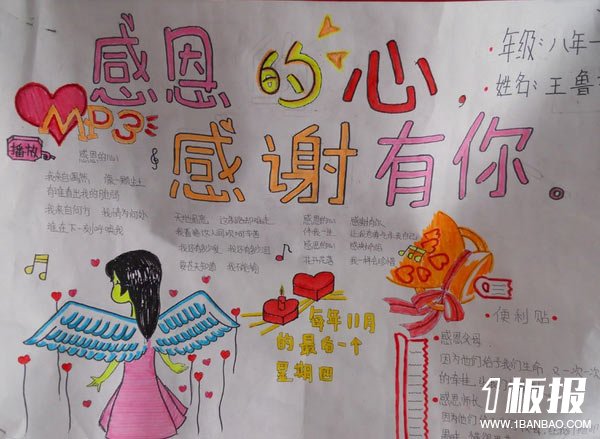 感恩的心，
感谢有你。
年级：八年一
姓名：王鲁
MP3
播放
感恩的心
我来自偶然 像一颗尘土
有谁看出我的脆弱
我来自何方 我情归何处
谁在下一刻呼唤我
天地虽宽 这条路却难走
我看遍这人间坎坷辛苦
我还有多少爱 我还有多少泪
要苍天知道 我不认输
感恩的心 感谢有你
伴我一生 让我有勇气作我自己
感恩的心 感谢命运
花开花落 我一样会珍惜
每年11月
的最后一个
星期四
便利贴
感恩父母
因为他们给予我们生命 又一次一次
的牵挂
感恩师长
因为他们给
1板报
WWW.1BANBAO.COM